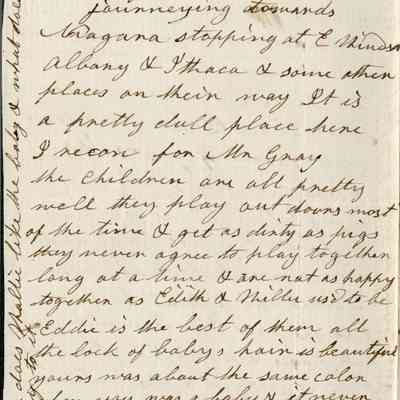 journeying towards
Niagara stopping at E Windsor
Albany & Ithaca & some other
places on their way It is
a pretty dull place here
I recon for Mr Gray
the children are all pretty
well they play out doors most
of the time & get as dirty as pigs
they never agree to play together
long at a time & are not as happy
together as Edith & Willie used to be
Eddie is the best of them all
the lock of babys hair is beautiful
yours was about the same color
when was a baby & it never
does Mattie like the baby & what does
to it